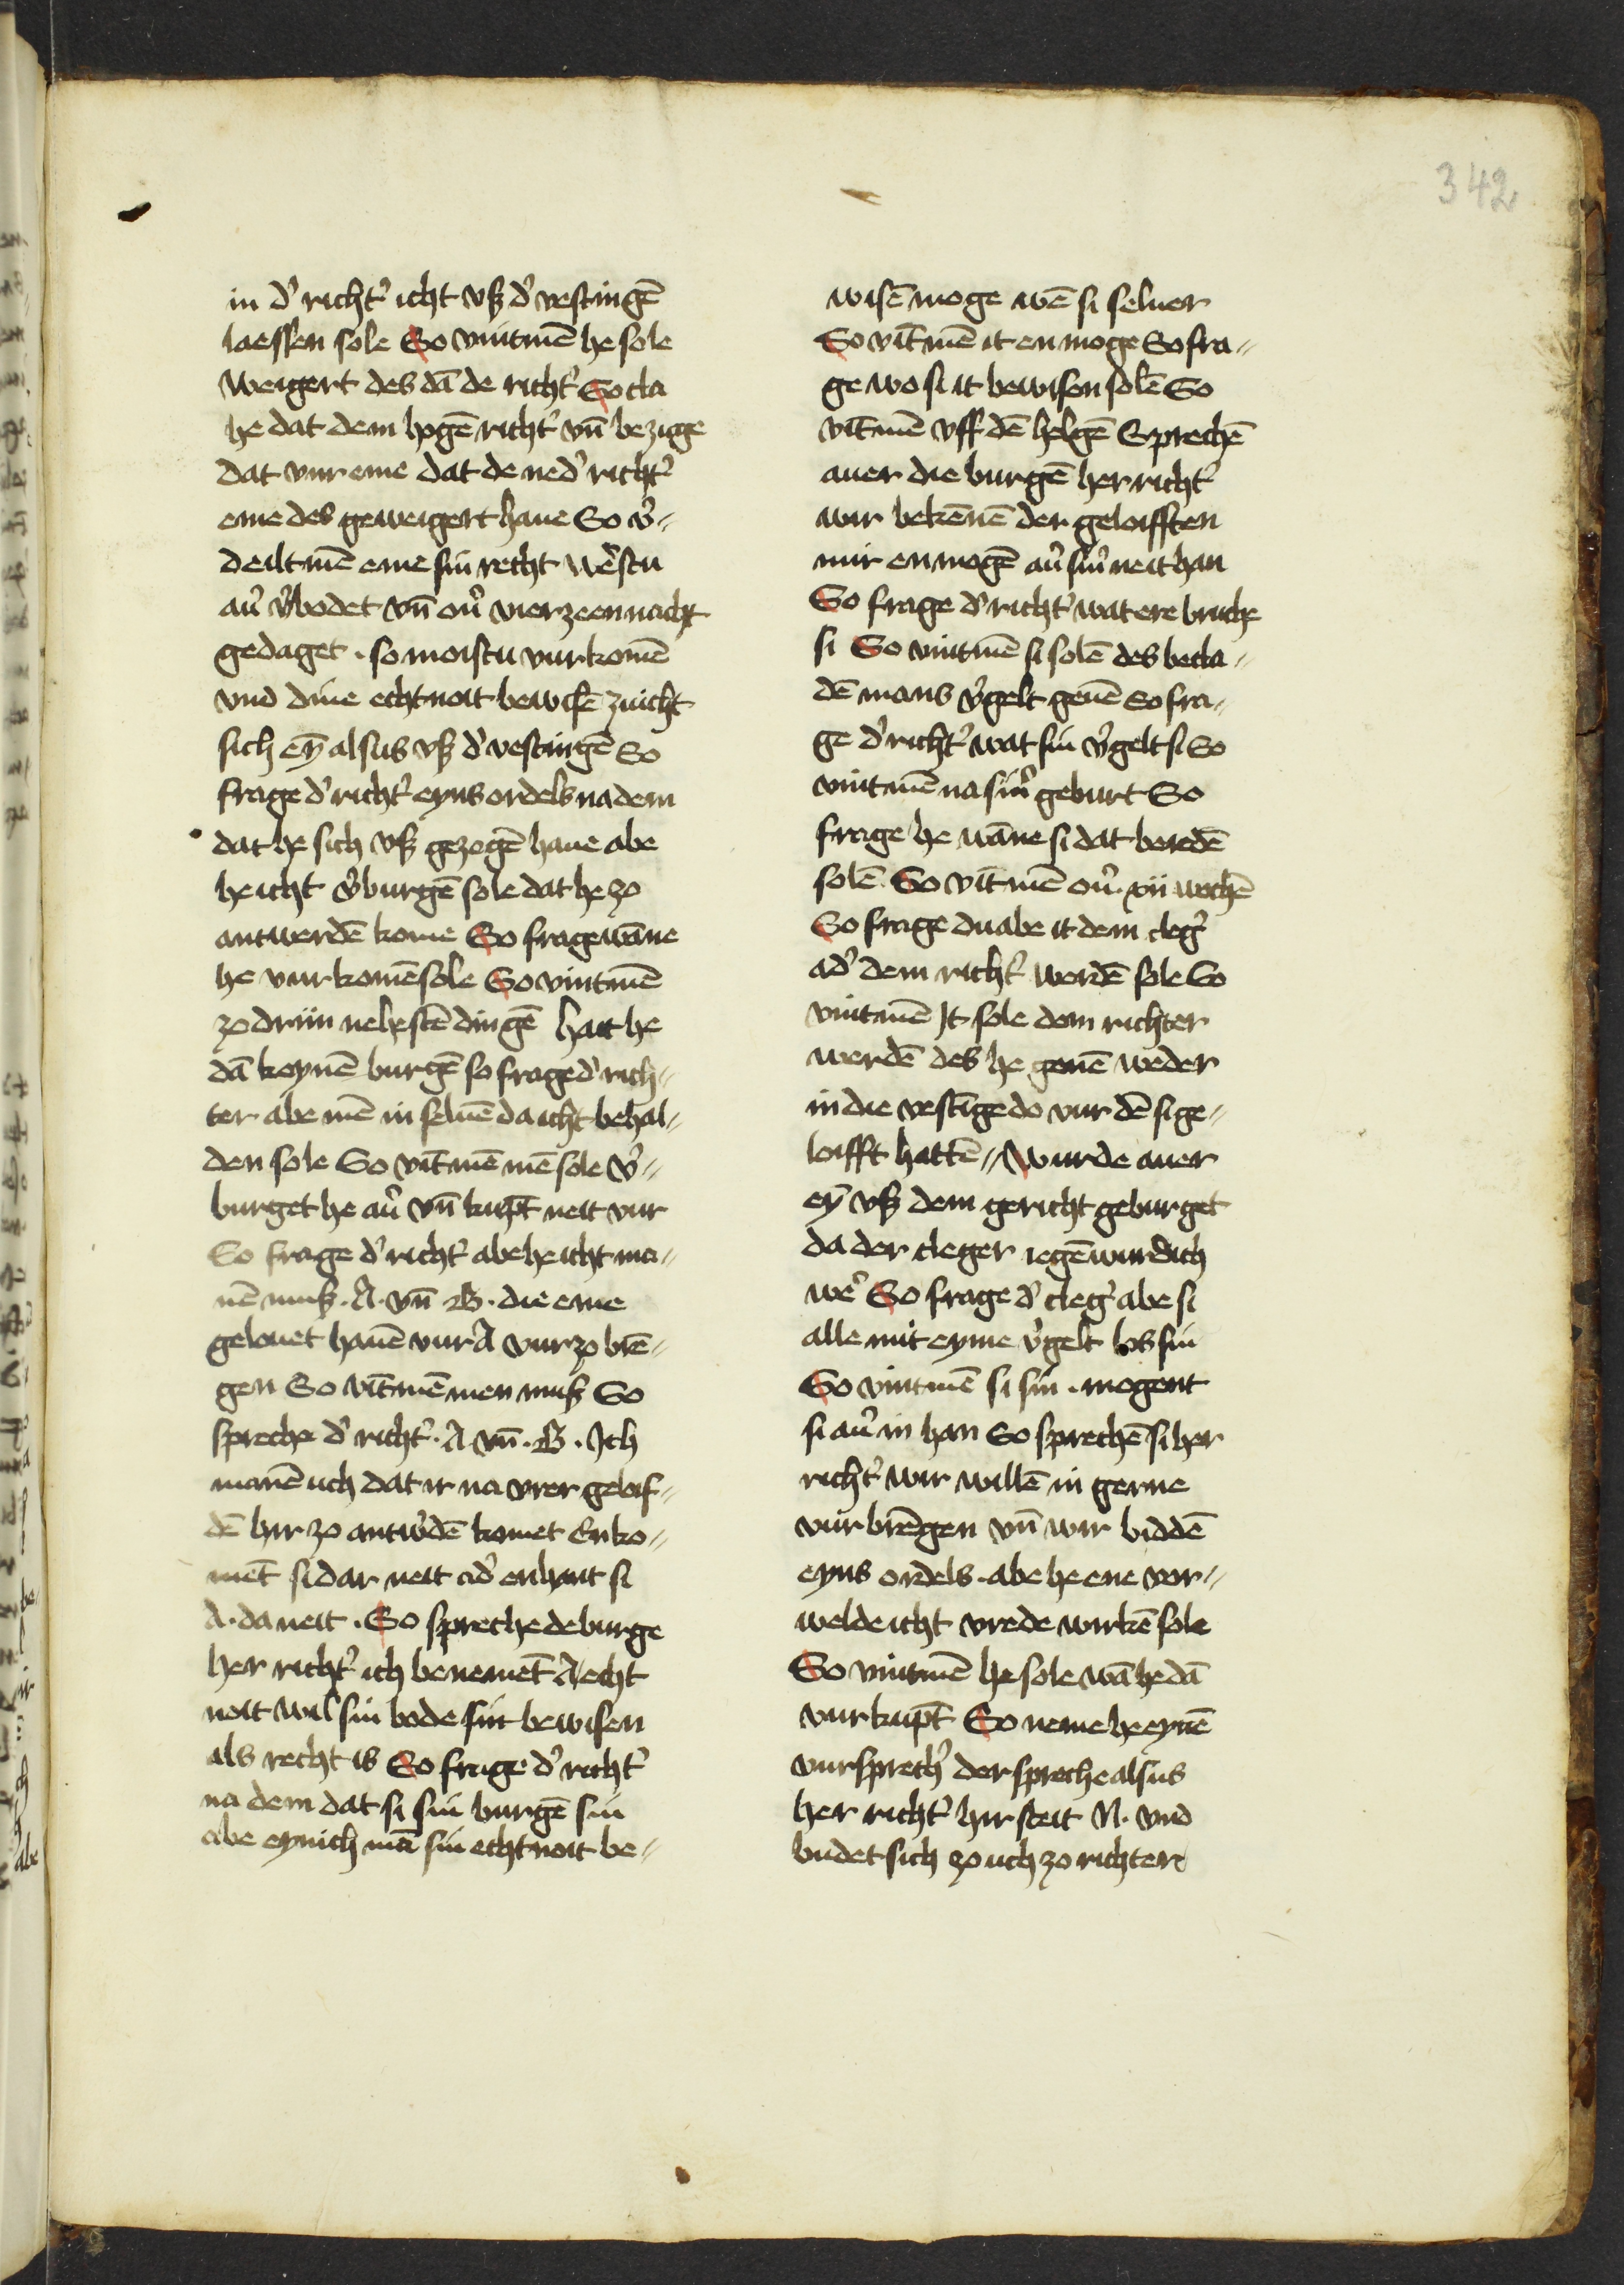 342
in d' richt' icht vß d' vestingē
laessen sole So vintmē he sole
weigert des dā de richt' So cla
he dat dem hogē richt' vn̄ bezuge
dat vur eme dat de ned' richt'
eme des geweigert haue So v'-
deiltmē eme sin recht we'stu
au' v'bodet vn̄ ou' vierzeen nacht
gedaget . so moistu vurkomē
vnd dine echt noit bewisē zuicht
sich eȳ alsus vß d' vestingē So
frage d' richt' eyns ordels na dem
dat he sich vß gezogē haue abe
he icht v'burgē sole dat he zo
antwerdē kome So frage wāne
he vur komē sole So vintmē
zo driin nehestē dingē hait he
dā keynē burgē so frage d' rich-
ter abe mē in seluē da icht behal-
den sole So vītmē mē sole v'-
burget he au' vn̄ kupt neit vur
So frage d' richt' abe he icht ma-
nē muß . A . vn̄ . B . die eme
gelouet hauē vur A vur zo brē-
gen So vītmē men muß So
spreche d' richt' . A vn̄ . B . Ich
manē uch dat ir na vrer gelof-
dē hir zo antw'dē komet En ko-
mēt si dar neit ad' enhaint si
A . da neit . So spreche de burge
her richt' ich benemēt A echt
noit wil sin bode sin bewisen
als recht is So frage d' richt'
na dem dat si sin burgē sin
abe eynich mā sin echt noit be-
wisē moge wē si seluer
So vītmē it en moge So fra-
ge wo si it bewisen solē So
vītmē vff dē helgē Sprechē
auer die burgē her richt'
wir bekēnē der geloifften
mir en mogē au' sin' neit han
So frage d' richt' wat ere bruche
si So vintmē si solē des becla-
dē mans v'gelt geuē So fra-
ge d' richt' wat sin v'gelt si So
vintmē na sin' geburt So
frage he wāne si dat beredē
solē . So vītmē ou' . xii wochē
So frage du abe it dem cleg'
ad' dem richt' werdē sole So
vintmē It sole dem richter
werdē des he geuē weder
in die vestīge do vur dē si ge-
loifft hattē Wurde auer
eȳ vß dem gericht geburget
da der cleger iegēwurdich
we' So frage d' cleg' abe si
alle mit eyme v'gelt los sin
So vintmē si sin . mogent
si au' in han So sprechē si her
richt' wir willē in gerne
vur brēgen vn̄ wir biddē
eyns ordels . abe he ene vor-
welde icht vrede wirkē sole
So vintmē he sole wā he dā
vur kupt So neme he eynē
vursprech' der spreche alsus
her richt' hir steit N . vnd
budet sich zo uch zo richter